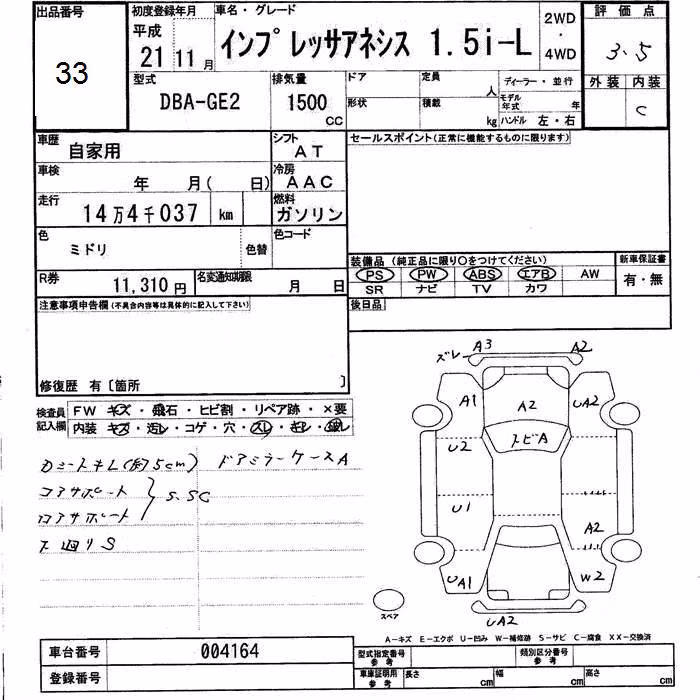 出品番号 初度登録年月 車名・グレード 2WD 評価点
33 平成 21 11月 インプレッサアネシス 1.5i-L ・ 3.5
4WD
型式 排気量 ドア 定員 人 ディーラー・並行 外装 内装
DBA-GE2 1500 CC 形状 積載 kg モデル年式 年 C
ハンドル 左・右
車歴 自家用 シフト AT セールスポイント(正常に機能するものに限ります)
車検 年 月( 日) 冷房 AAC
走行 14万4千037 km 燃料 ガソリン
色 ミドリ 色替 色コード
装備品 (純正品に限り○をつけてください) 新車保証書
R券 11,310円 名変通知期限 月 日 PS PW ABS エアB AW 有・無
SR ナビ TV カワ
注意事項申告欄(不具合内容等は具体的に記入して下さい) 後日品
修復歴 有〔箇所 〕
検査員 FW キズ・飛石・ヒビ割・リペア跡・×要
記入欄 内装 キズ・汚レ・コゲ・穴・スレ・キレ・
(約5cm) ドアミラーケースA
コアサポート S,SC
サポート
下廻りS
ズレ A3 A2
A1 A2 UA2
U2 A
U1 A2
UA1 W2
スペア UA2
A−キズ E−エクボ U−凹み W−補修跡 S−サビ C−腐食 XX−交換済
車台番号 004164 型式指定番号 参考 類別区分番号 参考
登録番号 車庫証明用 参考 長さ cm 幅 cm 高さ cm